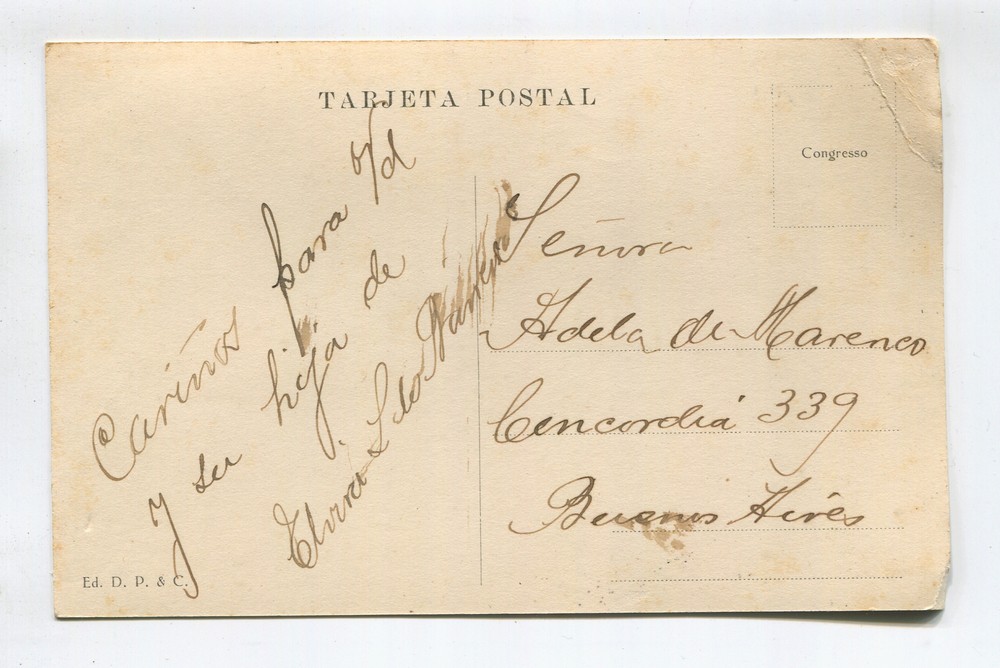 TARJETA POSTAL
Congresso
Cariños para
y su hija de
Elvira
Señora
Adela de Marenco
Concordia 339
Buenos Aires
Ed. D. P. & C.